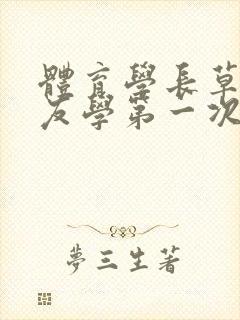 體育學長草
友學第一次
夢三生著